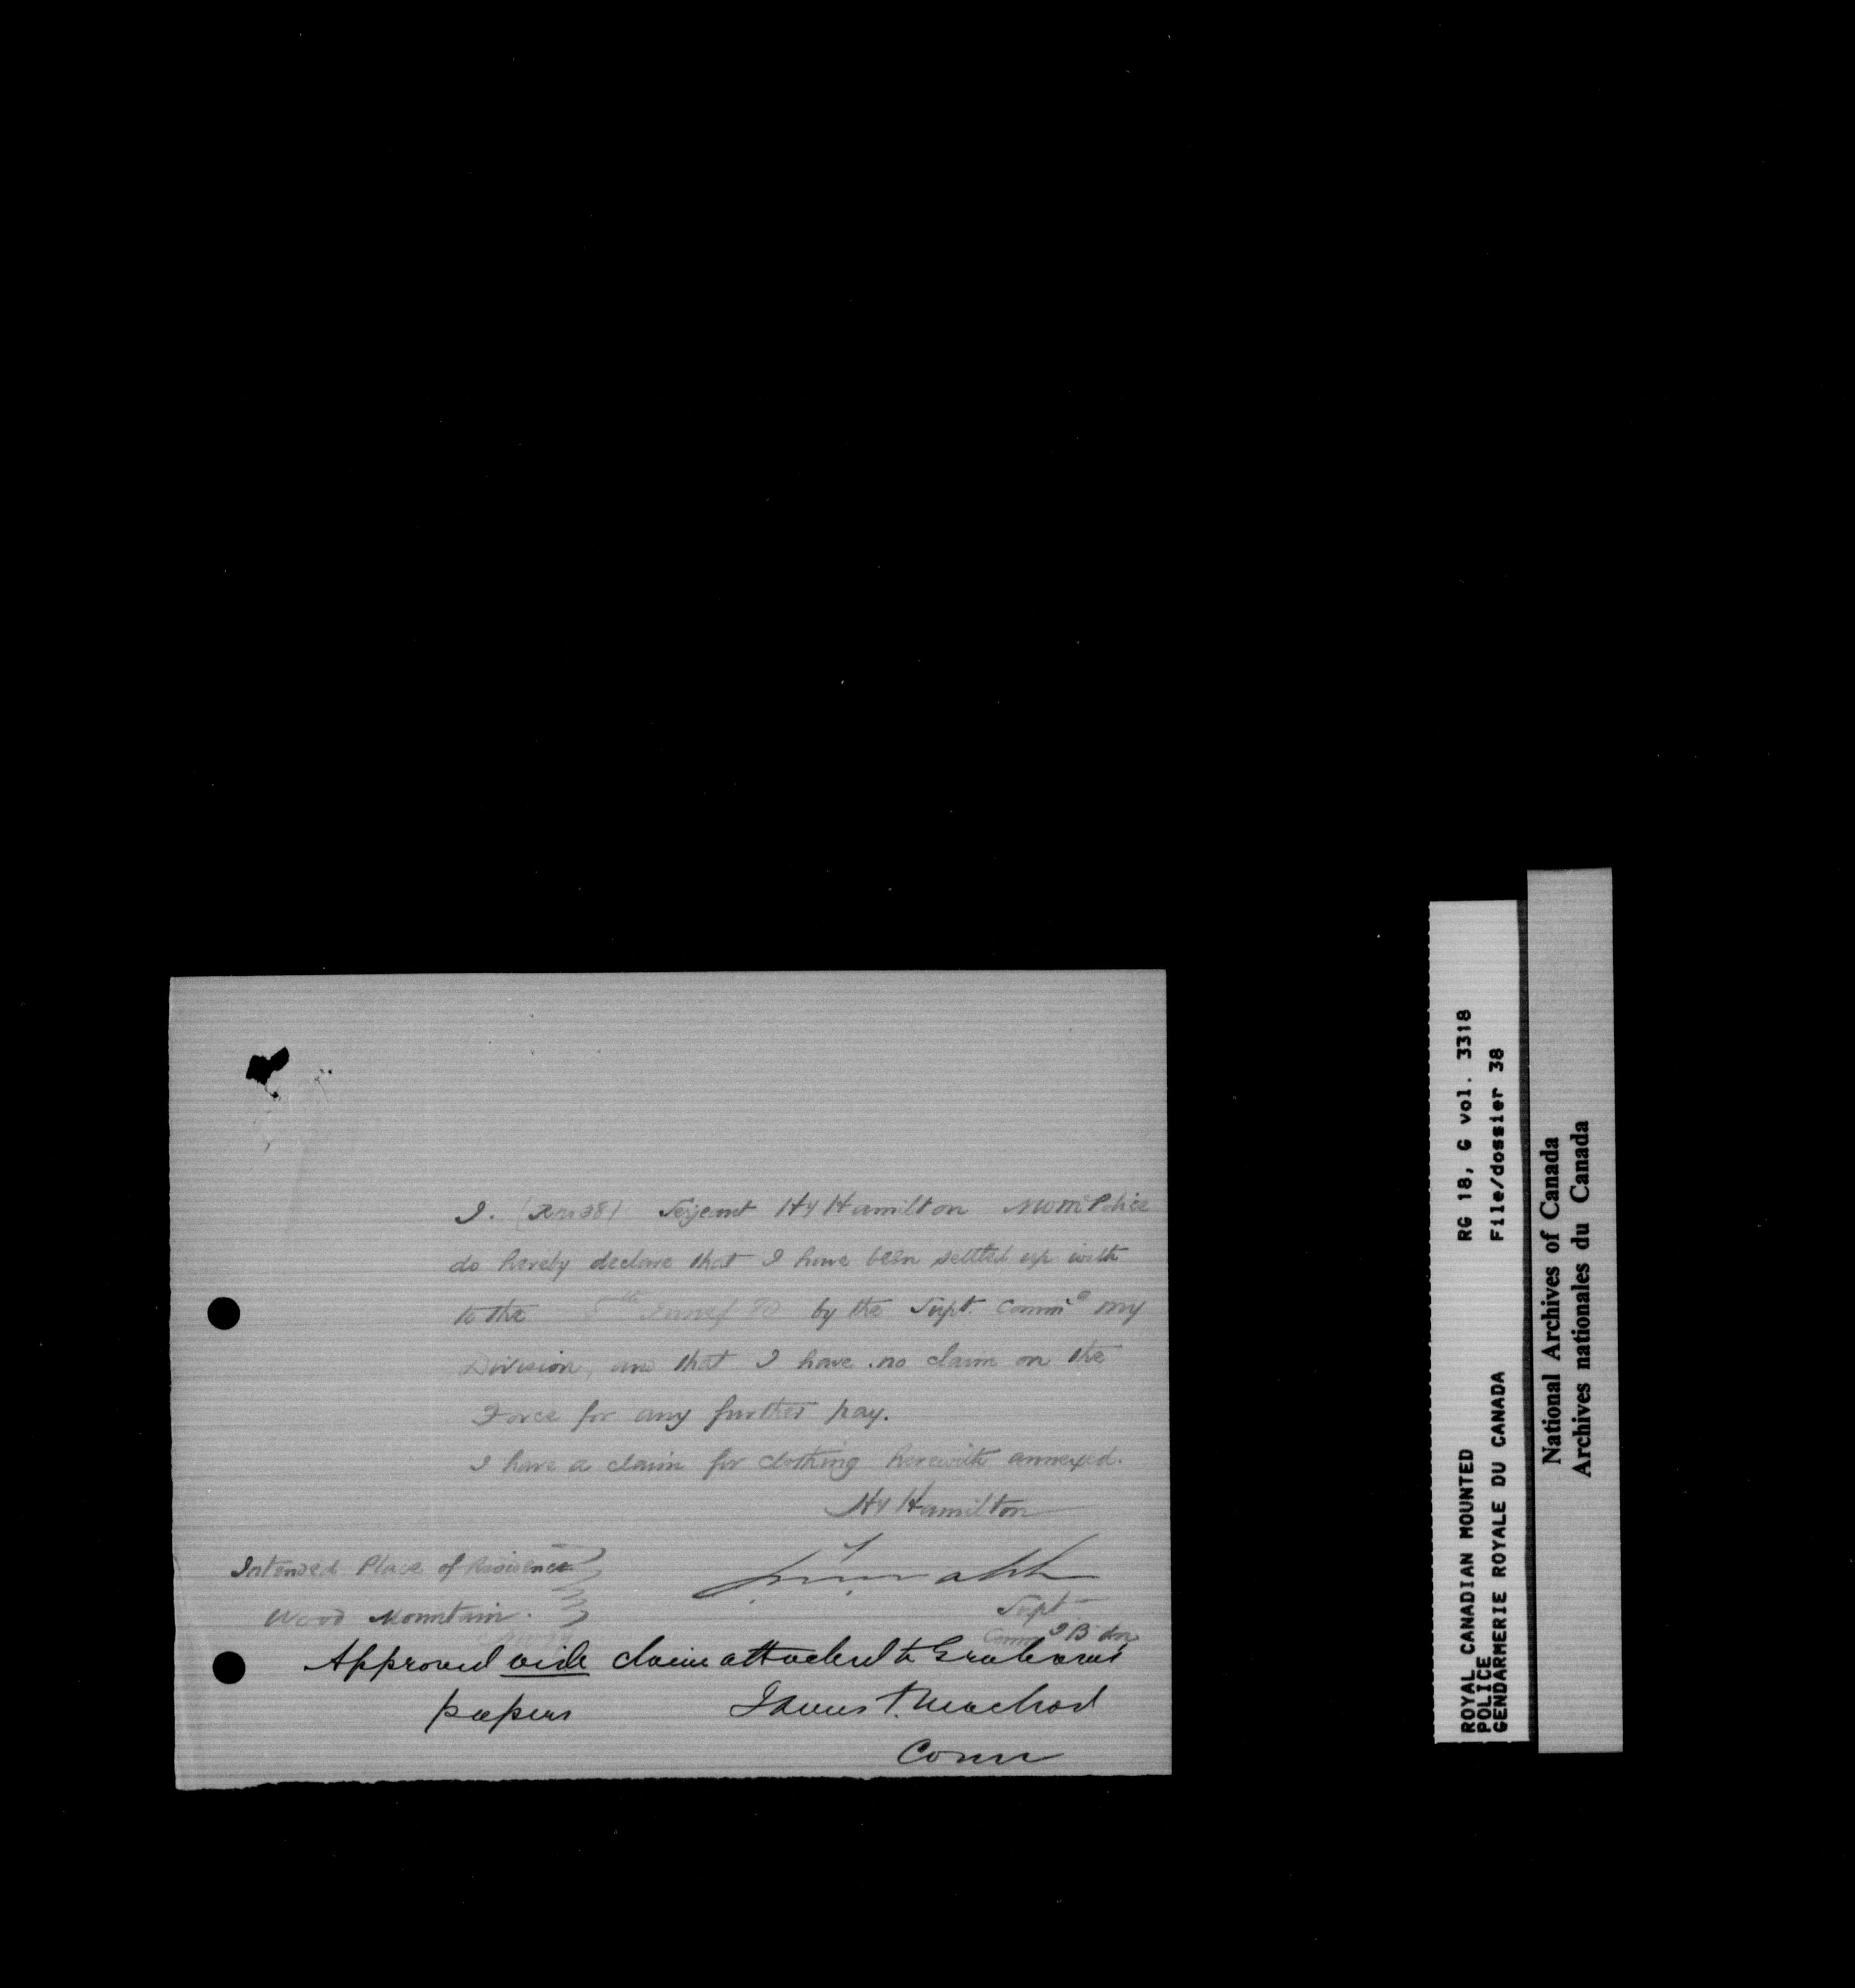 I. (No 38) Serjeant Hy Hamilton NWM Police
do hereby declare that I have been settled up with
to the 5th June/80 by the Supt. Commg my
Division, and that I have no claim on the
Force for any further pay.
I have a claim for clothing herewith annexed.
Hy Hamilton
Intended Place of Residence
Wood Mountain.
Supt
Commg B Dn
Approved vide claim attached to Graham's
papers
James F. Macleod
Comr
ROYAL CANADIAN MOUNTED
POLICE
GENDARMERIE ROYALE DU CANADA
RG 18, G vol. 3318
File/dossier 38
National Archives of Canada
Archives nationales du Canada